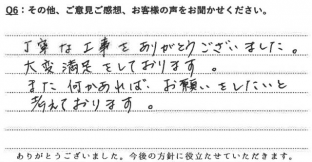 Q6：その他、ご意見ご感想、お客様の声をお聞かせください。
丁寧な工事をありがとうございました。
大変満足をしております。
また何かあれば、お願いをしたいと
考えております。
ありがとうございました。今後の方針に役立たせていただきます。